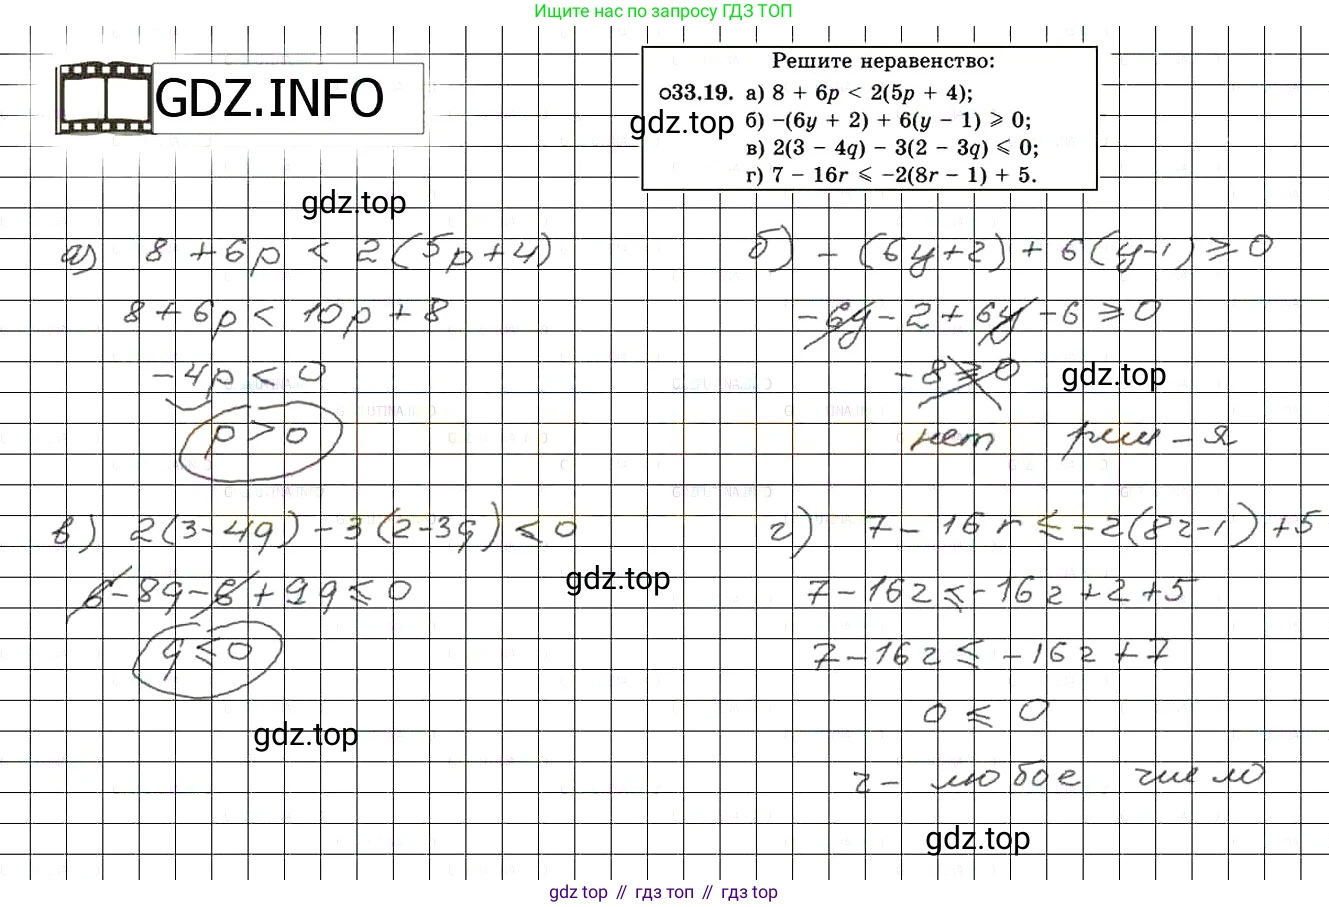 Ищите нас по запросу ГДЗ ТОП
GDZ.INFO
Решите неравенство:
о33.19. а) 8 + 6p < 2(5p + 4);
б) –(6y + 2) + 6(y – 1) ⩾ 0;
в) 2(3 – 4q) – 3(2 – 3q) ⩽ 0;
г) 7 – 16r ⩽ –2(8r – 1) + 5.
gdz.top
gdz.top
а) 8 + 6p < 2(5p+4)
8 + 6p < 10p + 8
-4p < 0
p > 0
б) -(6y+2) + 6(y-1) ⩾ 0
-6y - 2 + 6y - 6 ⩾ 0
-8 ⩾ 0
gdz.top
нет реш-я
в) 2(3-4q) - 3(2-3q) ⩽ 0
6 - 8q - 6 + 9q ⩽ 0
q ⩽ 0
gdz.top
г) 7 - 16r ⩽ -2(8r-1) + 5
7 - 16r ⩽ -16r + 2 + 5
7 - 16r ⩽ -16r + 7
0 ⩽ 0
r - любое число
gdz.top
gdz.top
gdz top // гдз топ // gdz top